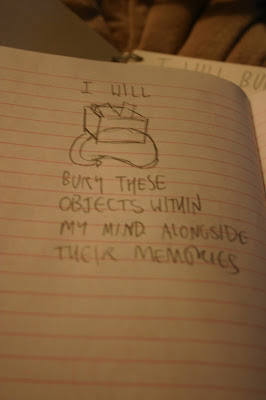 I WILL
BURY THESE
OBJECTS WITHIN
MY MIND ALONGSIDE
THEIR MEMORIES
I WILL BU